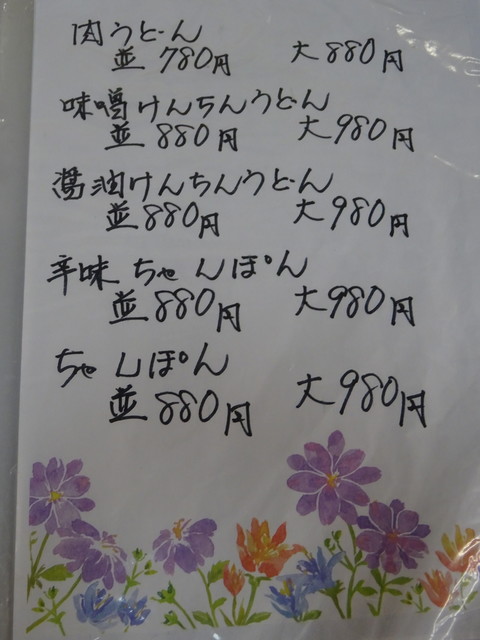 肉うどん
並 780円 大 880円
味噌けんちんうどん
並 880円 大 980円
醤油けんちんうどん
並 880円 大 980円
辛味 ちゃんぽん
並 880円 大 980円
ちゃんぽん
並 880円 大 980円